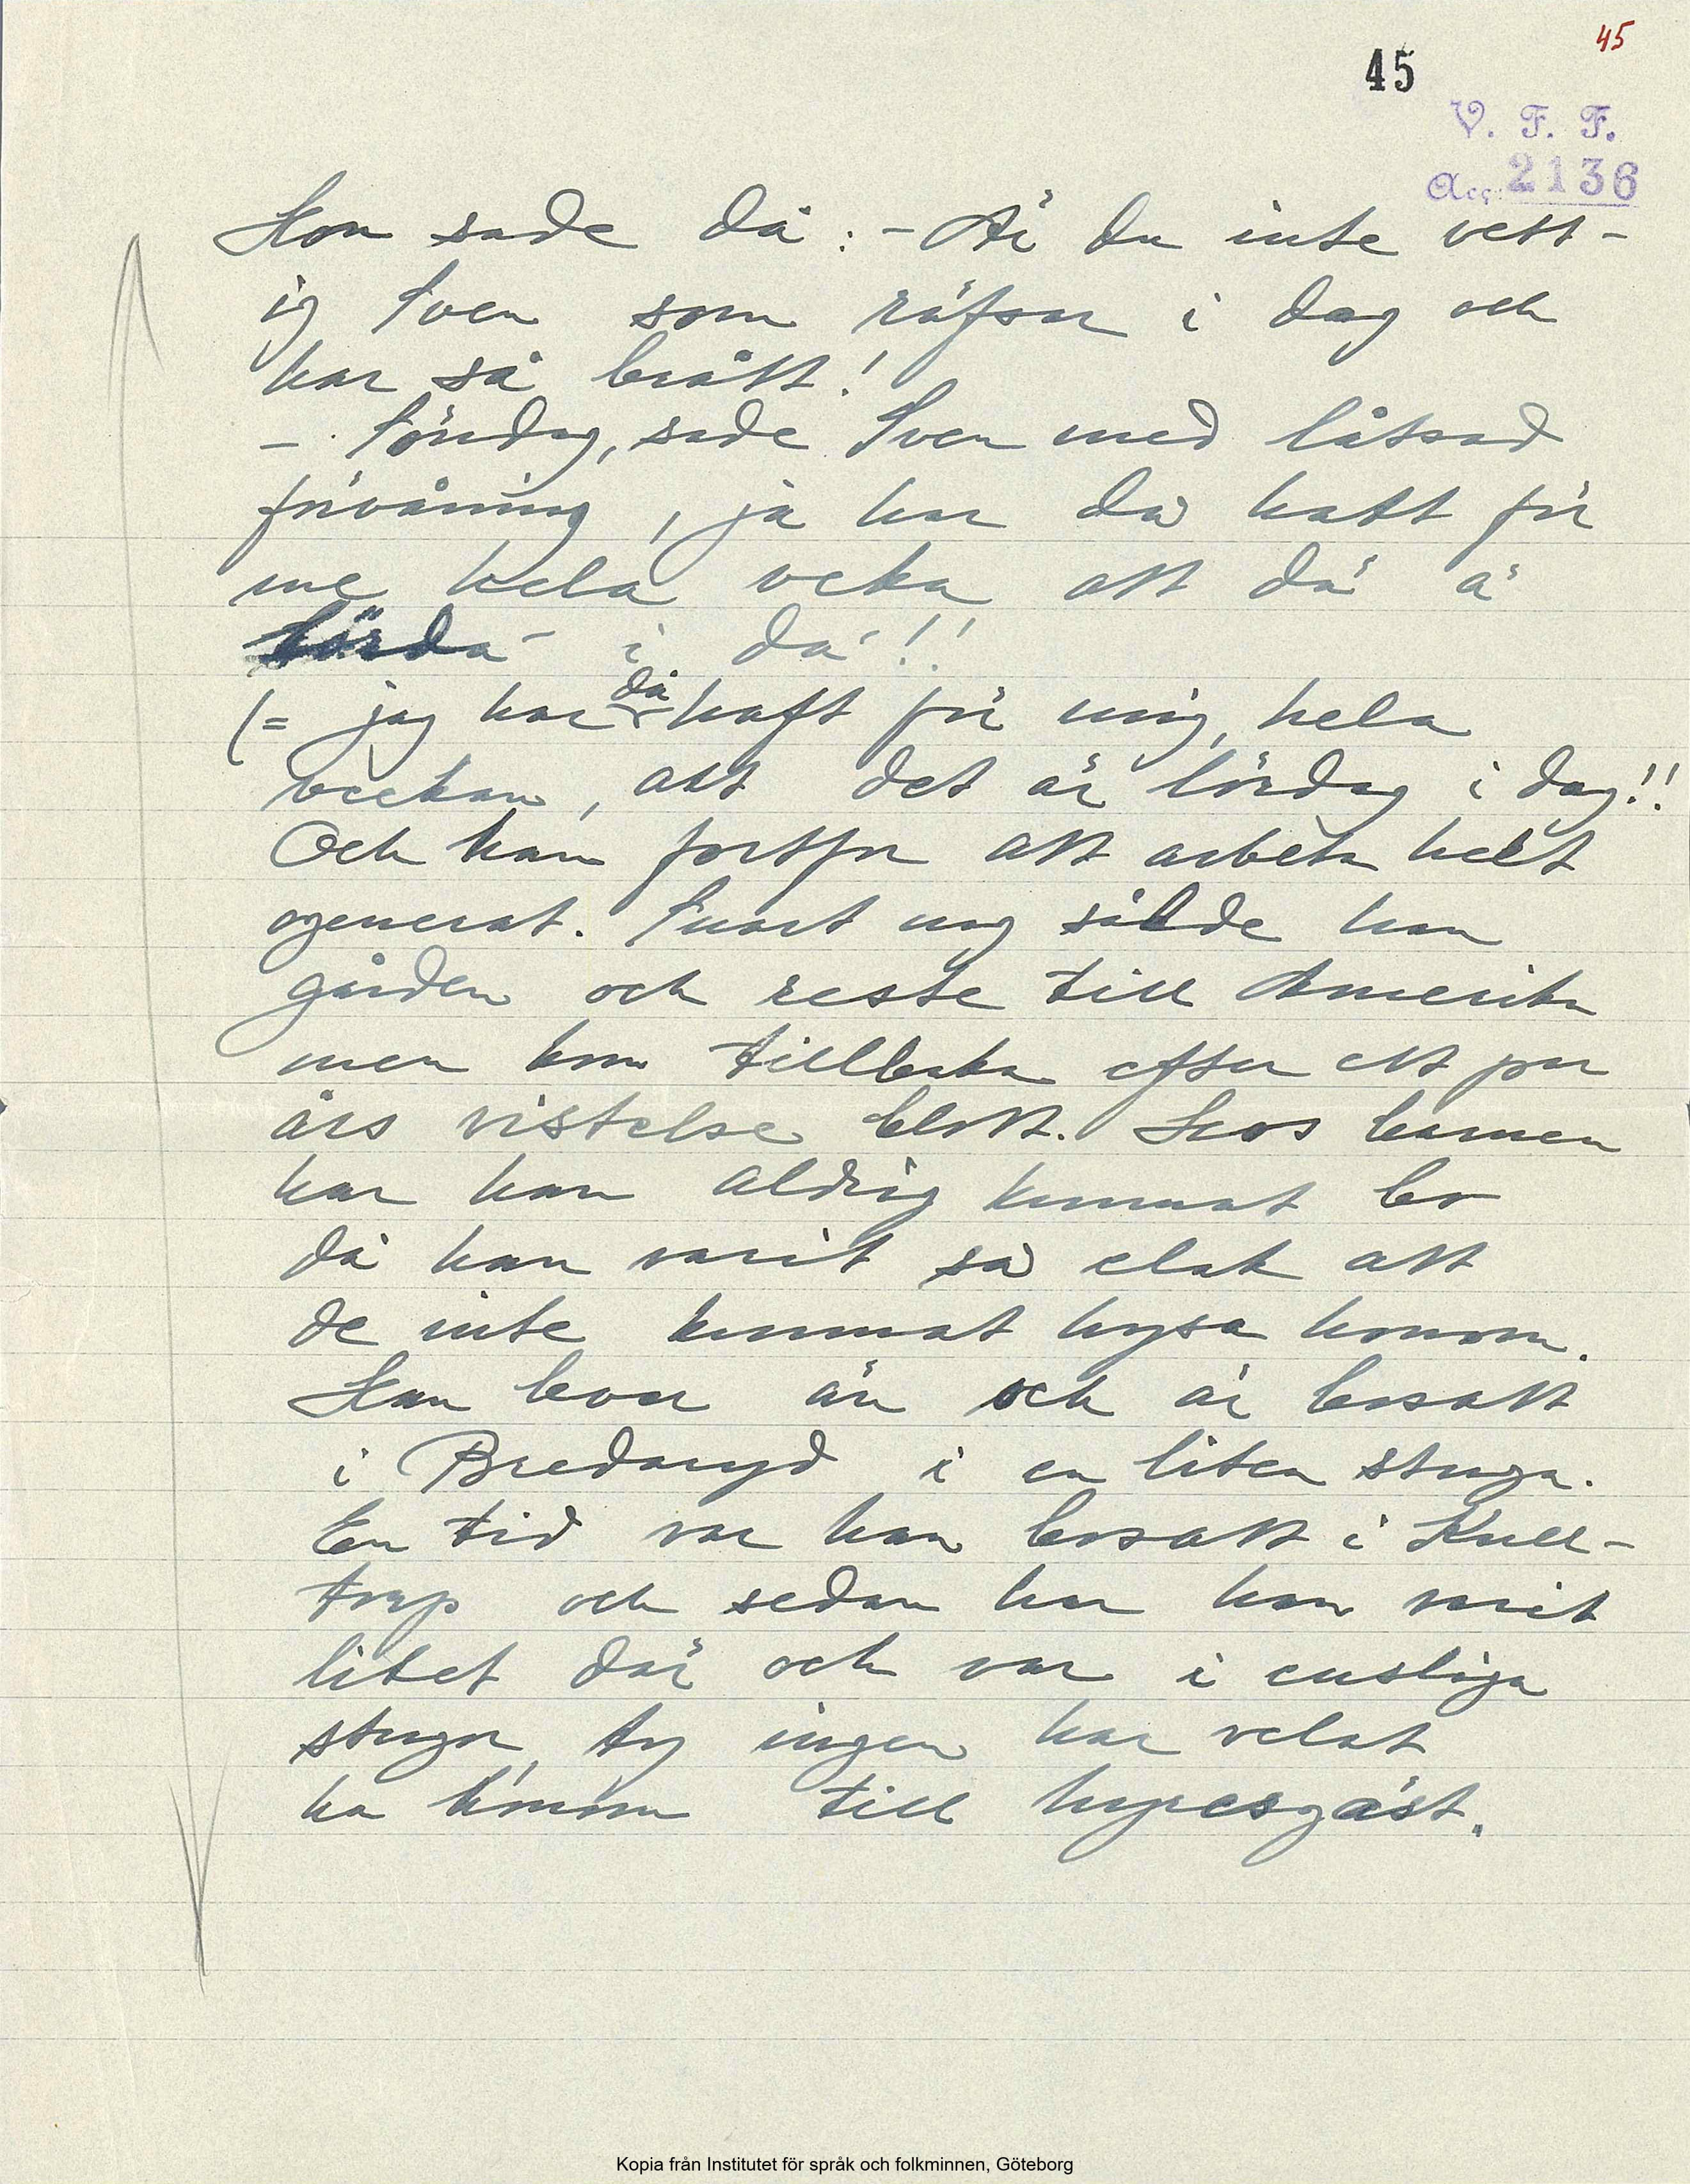 45
45
V. F. F.
Acc. 2136
Hon sade då: - Är du inte vett-
ig Sven som räfsar i dag och
har så brått!
- Söndag, sade Sven med låtsad
förvåning, ja har då hatt för
me hela veka att dä ä
lörda i da!!
(= jag har då haft för mig, hela
veckan, att det är lördag i dag!!
Och han fortfor att arbeta helt
ogenerat. Snart nog sålde han
gården och reste till Amerika
men kom tillbaka efter ett par
års vistelse blott. Hos barnen
har han aldrig kunnat bo
då han varit så elak att
de inte kunnat hysa honom.
Han lever än och är bosatt
i Bredaryd i en liten stuga.
En tid var han bosatt i Kull-
torp och sedan har han varit
litet där och var i ensliga
stugor, ty ingen har velat
ha honom till hyresgäst.
Kopia från Institutet för språk och folkminnen, Göteborg